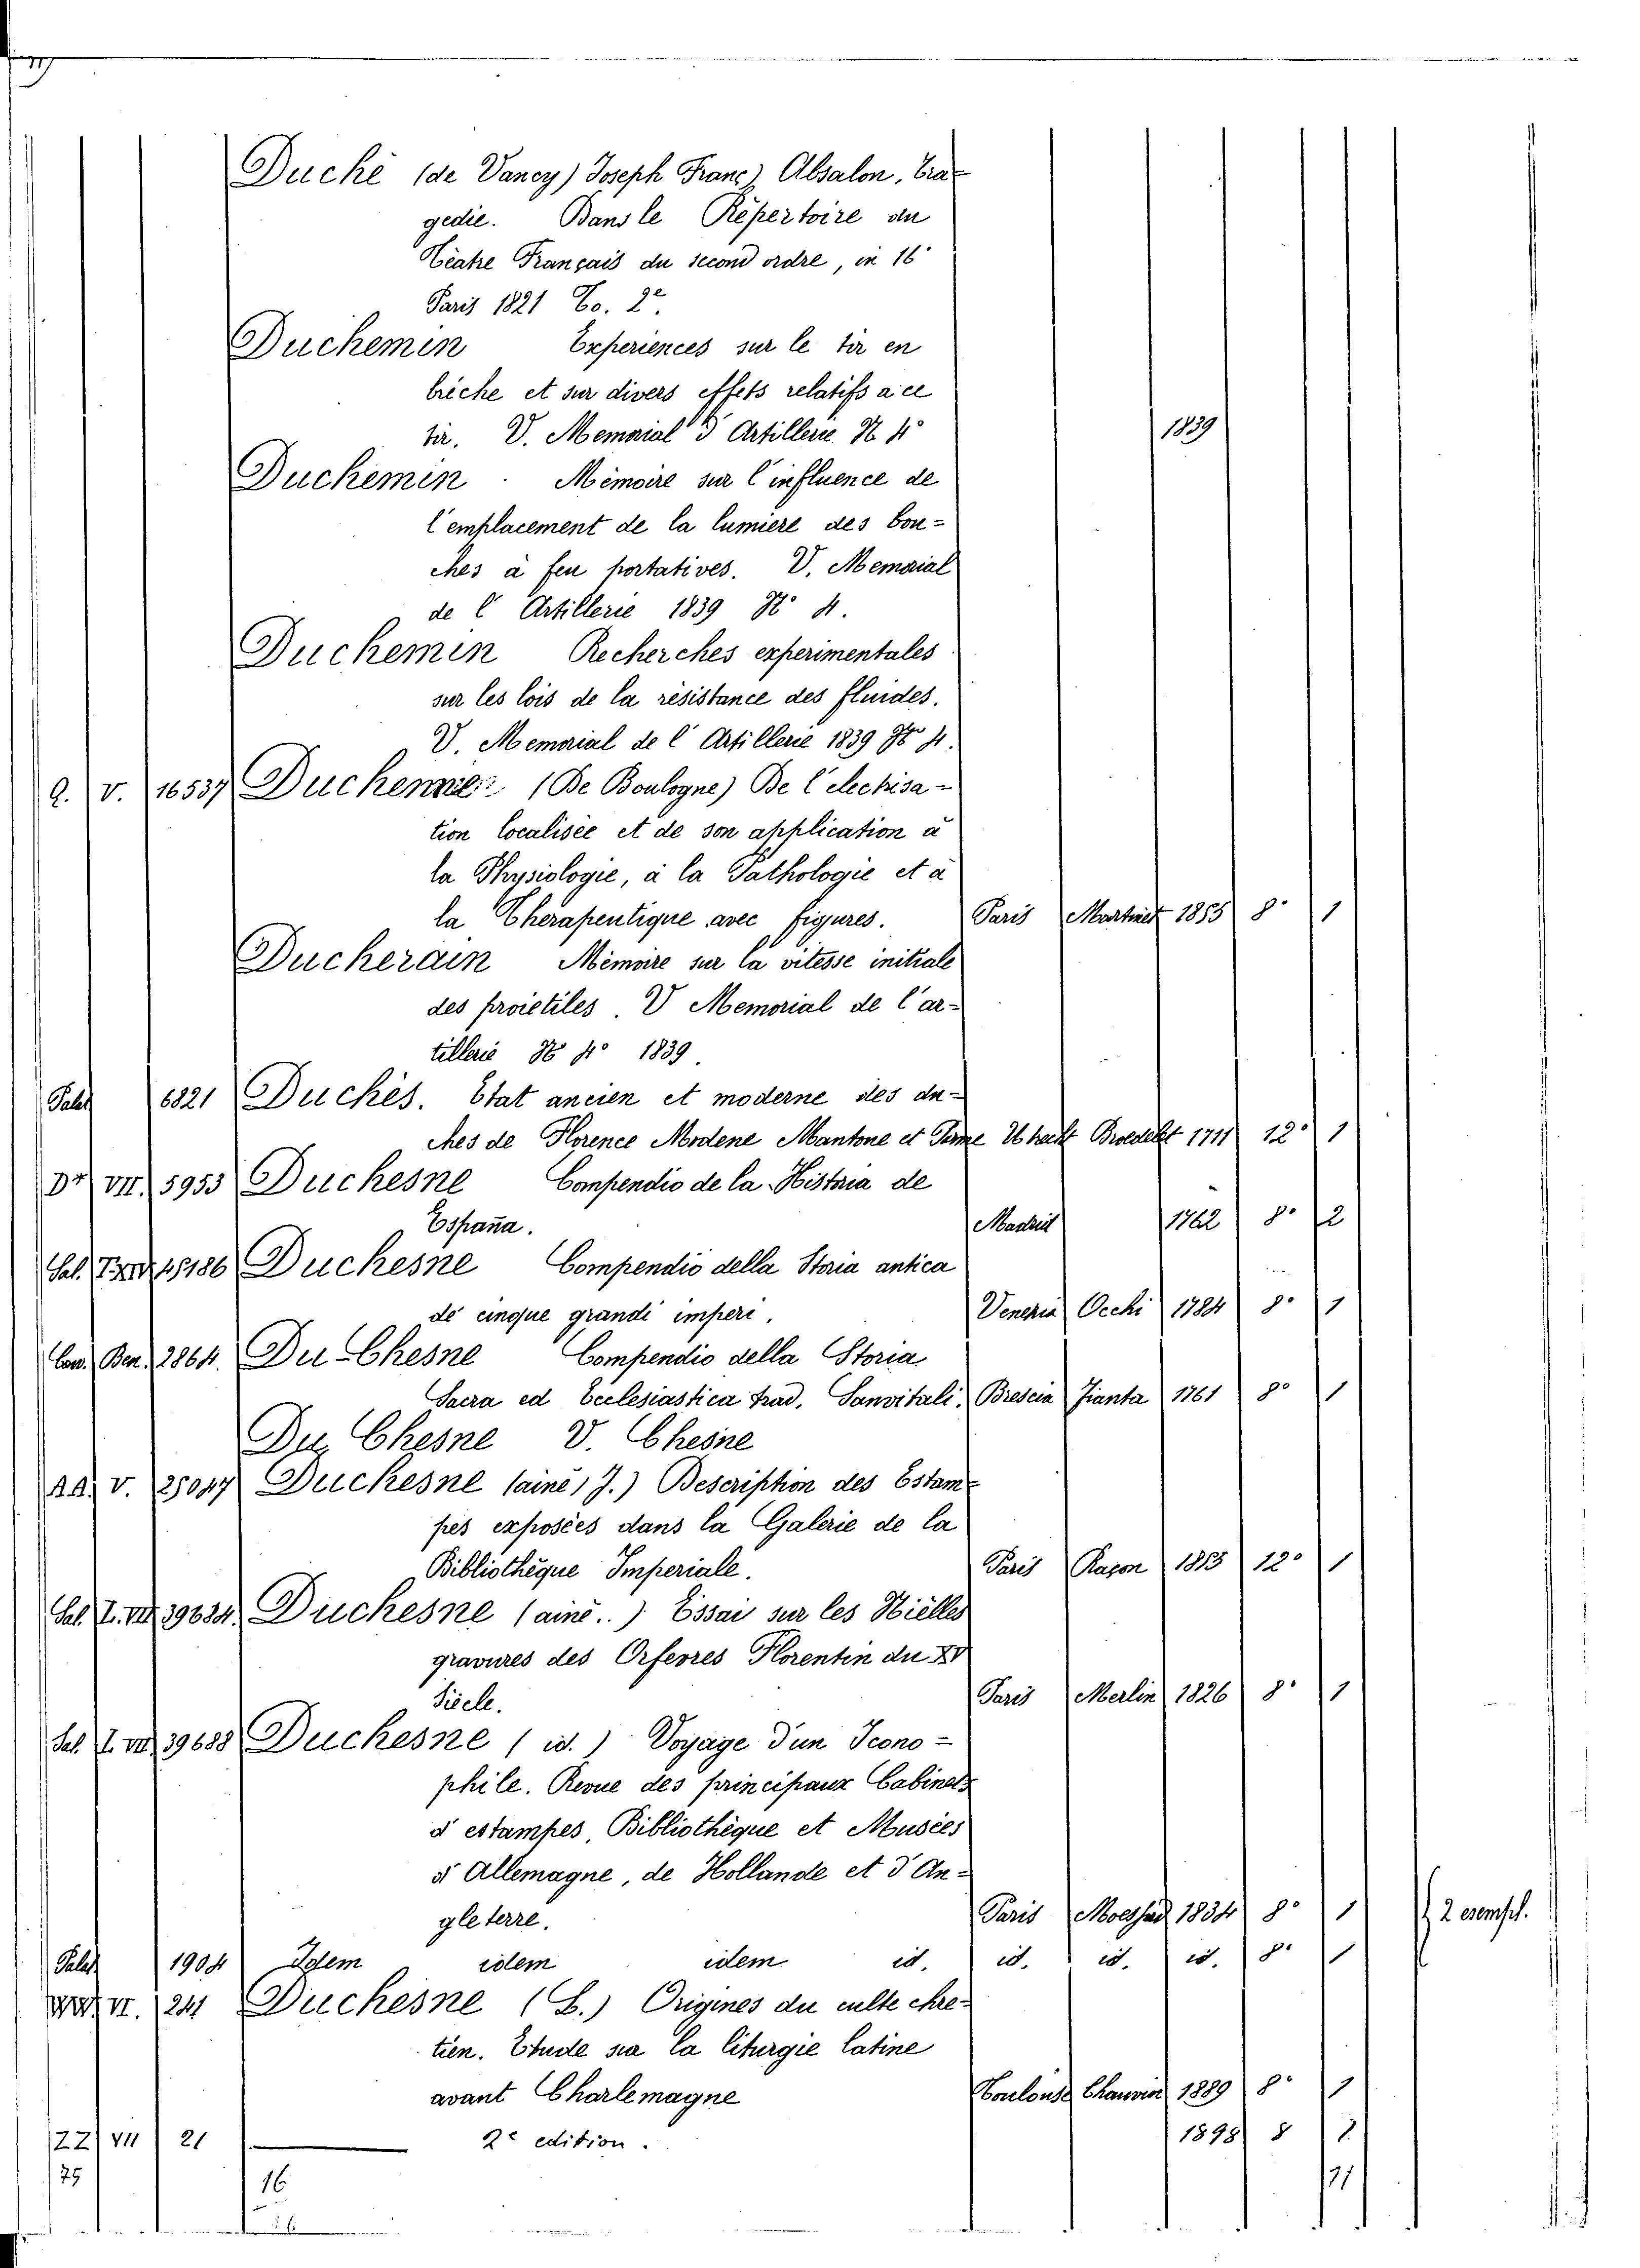 Duché (de Vancy) Joseph Franc) Absalon, tra-
gedie. Dans le Répertoire du
Théatre Français du second ordre, in 16°
Paris 1821 To. 2e.
Duchemin Experiences sur le tir en
brêche et sur divers effets relatifs à ce
tir. V. Memorial d'Artillerie N 4° 1839
Duchemin Mémoire sur l'influence de
l'emplacement de la lumiere des bou-
ches à feu portatives. V. Memorial
de l'Artillerie 1839 N° 4.
Duchemin Recherches experimentales
sur les lois de la résistance des fluides.
V. Memorial de l'Artillerie 1839 N° 4.
Q. V. 16537 Duchenne (De Boulogne) De l'electrisa-
tion localisée et de son application à
la Physiologie, à la Pathologie et à
la Therapeutique avec figures. Paris Martinet 1855 8° 1
Ducherain Mémoire sur la vitesse initiale
des proietiles. V Memorial de l'ar-
tillerie N 4° 1839.
Palat 6821 Duchés. Etat ancien et moderne des du-
ches de Florence Modene Mantone et Parme Utrecht Broedelet 1711 12° 1
VII. 5953 Duchesne Compendio de la Historia de
España. Madrid 1762 8° 2
Sal. 15186 Duchesne Compendio della Storia antica
de cinque grandi imperi. Venezia Occhi 1784 8° 1
Con. Ben. 2864. Du Chesne Compendio della Storia
Sacra ed Ecclesiastica trad. Sanvitali. Brescia Jianta 1761 8° 1
Du Chesne V. Chesne
AA. V. 25047 Duchesne (ainé) J.) Description des Estam-
pes exposées dans la Galerie de la
Bibliothèque Imperiale. Paris Raçon 1855 12° 1
Sal. I. VII. 39634. Duchesne (ainé..) Essai sur les Nielles
gravures des Orfevres Florentin du XV
Siècle. Paris Merlin 1826 8° 1
Sal. I. VII. 39688 Duchesne (id.) Voyage d'un Icono-
phile. Revue des principaux Cabinets
d'estampes, Bibliothèque et Musées
d'Allemagne, de Hollande et d'An-
gleterre. Paris 1834 8° 1 2 esempl.
Palat 1904 Idem idem idem id. id. id. id. 8° 1
VI. 241 Duchesne (L.) Origines du culte chre-
tien. Etude sur la liturgie latine
avant Charlemagne Toulouse Chauvin 1889 8° 1
ZZ VII 21 2e edition. 1898 8 1
25 16